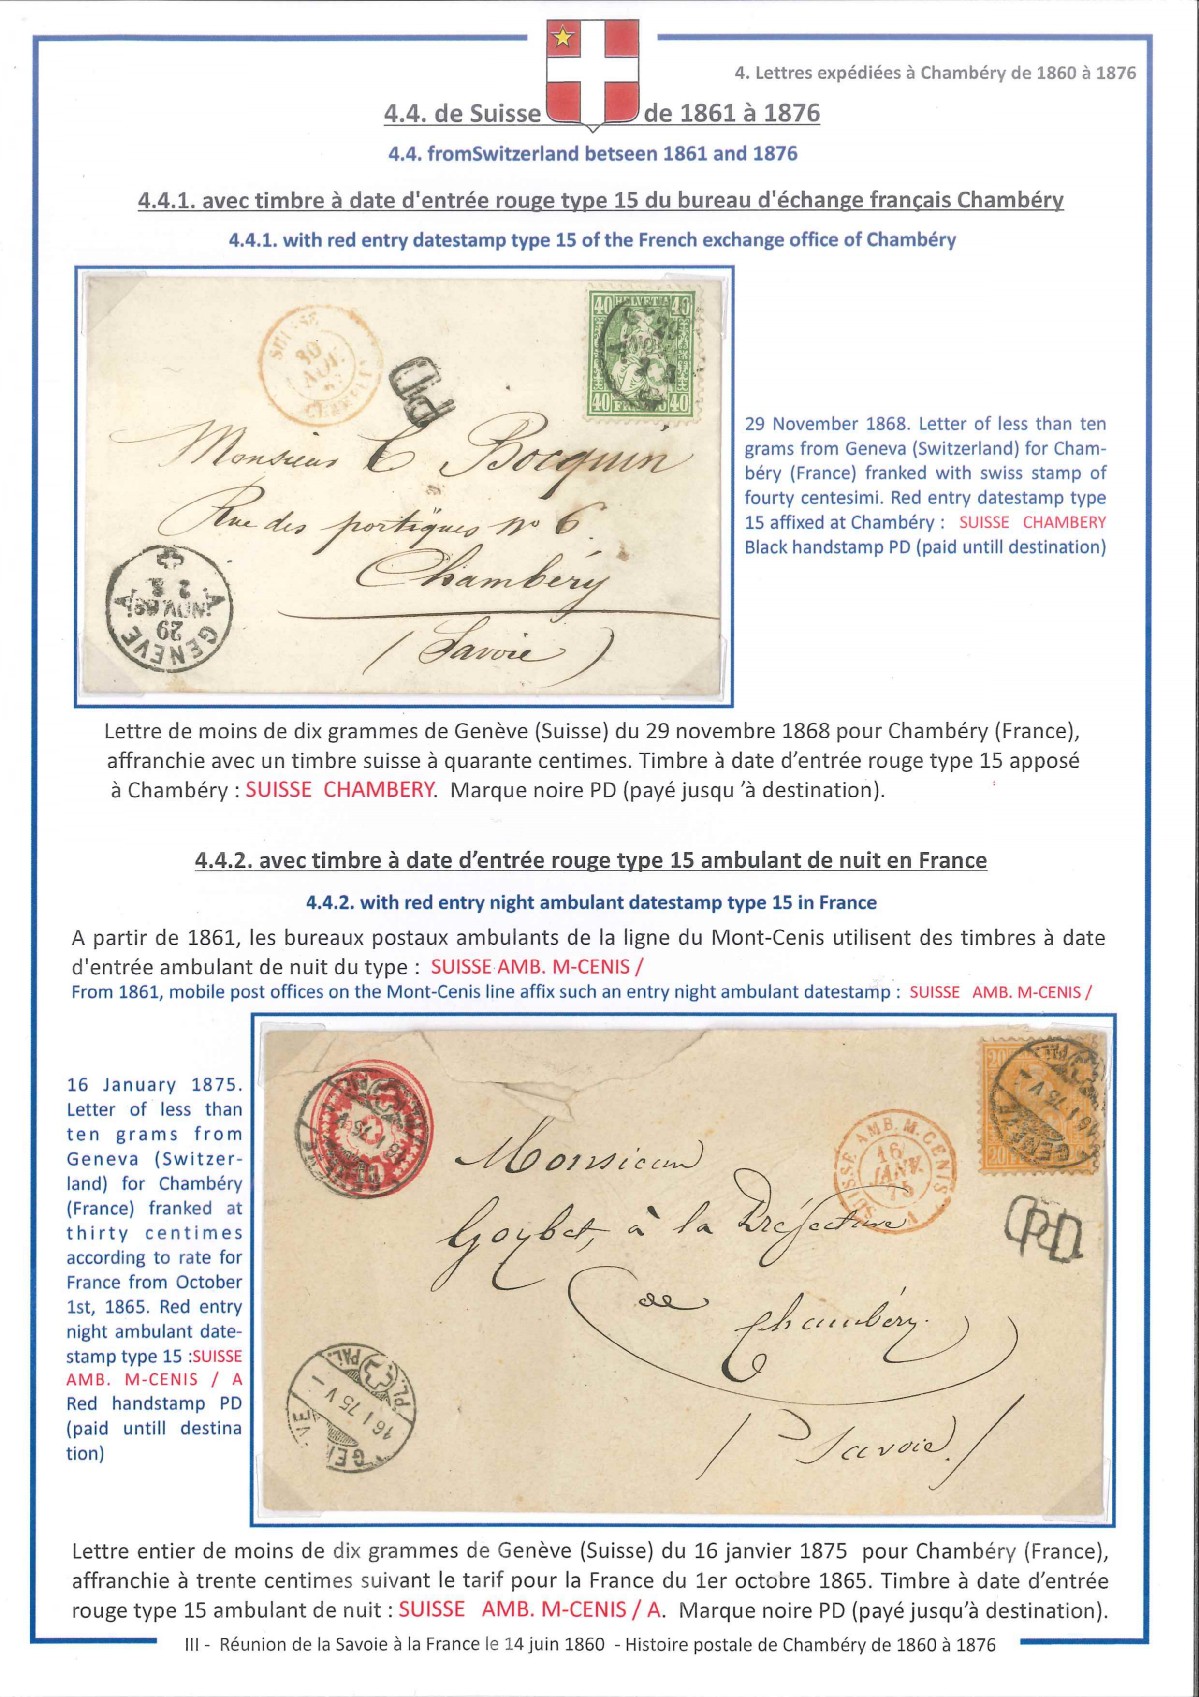 4. Lettres expédiées à Chambéry de 1860 à 1876
4.4. de Suisse de 1861 à 1876
4.4. fromSwitzerland betseen 1861 and 1876
4.4.1. avec timbre à date d'entrée rouge type 15 du bureau d'échange français Chambéry
4.4.1. with red entry datestamp type 15 of the French exchange office of Chambéry
SUISSE
30
NOV.
CHAMBERY
PD
40 HELVETIA 40
40 FRANCO 40
Monsieur C Bocquin
Rue des portiques No 6
Chambéry
(Savoie)
GENEVE
29
NOV 68
A A
29 November 1868. Letter of less than ten
grams from Geneva (Switzerland) for Cham-
béry (France) franked with swiss stamp of
fourty centesimi. Red entry datestamp type
15 affixed at Chambéry : SUISSE CHAMBERY
Black handstamp PD (paid untill destination)
Lettre de moins de dix grammes de Genève (Suisse) du 29 novembre 1868 pour Chambéry (France),
affranchie avec un timbre suisse à quarante centimes. Timbre à date d’entrée rouge type 15 apposé
à Chambéry : SUISSE CHAMBERY. Marque noire PD (payé jusqu ’à destination).
4.4.2. avec timbre à date d’entrée rouge type 15 ambulant de nuit en France
4.4.2. with red entry night ambulant datestamp type 15 in France
A partir de 1861, les bureaux postaux ambulants de la ligne du Mont-Cenis utilisent des timbres à date
d'entrée ambulant de nuit du type : SUISSE AMB. M-CENIS /
From 1861, mobile post offices on the Mont-Cenis line affix such an entry night ambulant datestamp : SUISSE AMB. M-CENIS /
16 January 1875.
Letter of less than
ten grams from
Geneva (Switzer-
land) for Chambéry
(France) franked at
thirty centimes
according to rate for
France from October
1st, 1865. Red entry
night ambulant date-
stamp type 15 :SUISSE
AMB. M-CENIS / A
Red handstamp PD
(paid untill destina
tion)
SUISSE AMB. M. CENIS A
16
JANV.
75
20
20
PD
Monsieur
Goybet, à la Préfecture
de
Chambéry.
(Savoie.)
GENÈVE
16 I 75 V –
PL. PAL.
Lettre entier de moins de dix grammes de Genève (Suisse) du 16 janvier 1875 pour Chambéry (France),
affranchie à trente centimes suivant le tarif pour la France du 1er octobre 1865. Timbre à date d’entrée
rouge type 15 ambulant de nuit : SUISSE AMB. M-CENIS / A. Marque noire PD (payé jusqu’à destination).
III - Réunion de la Savoie à la France le 14 juin 1860 - Histoire postale de Chambéry de 1860 à 1876